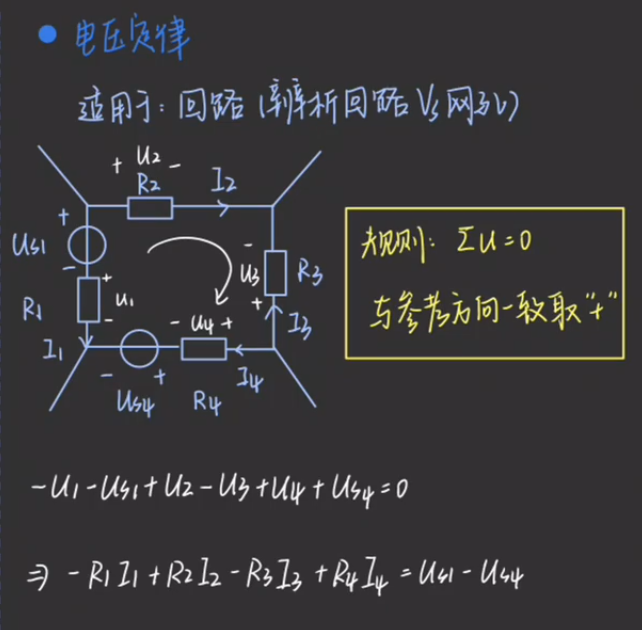 电压定律
适用于：回路（辨析回路 Vs 网孔）
+ U2 -
R2
I2
+
Us1
-
+
U1
-
R1
I1
-
U3
+
R3
I3
- U4 +
- Us4 +
R4
I4
规则：ΣU=0
与参考方向一致取“+”
-U1-Us1+U2-U3+U4+Us4=0
⇒ -R1I1+R2I2-R3I3+R4I4=Us1-Us4